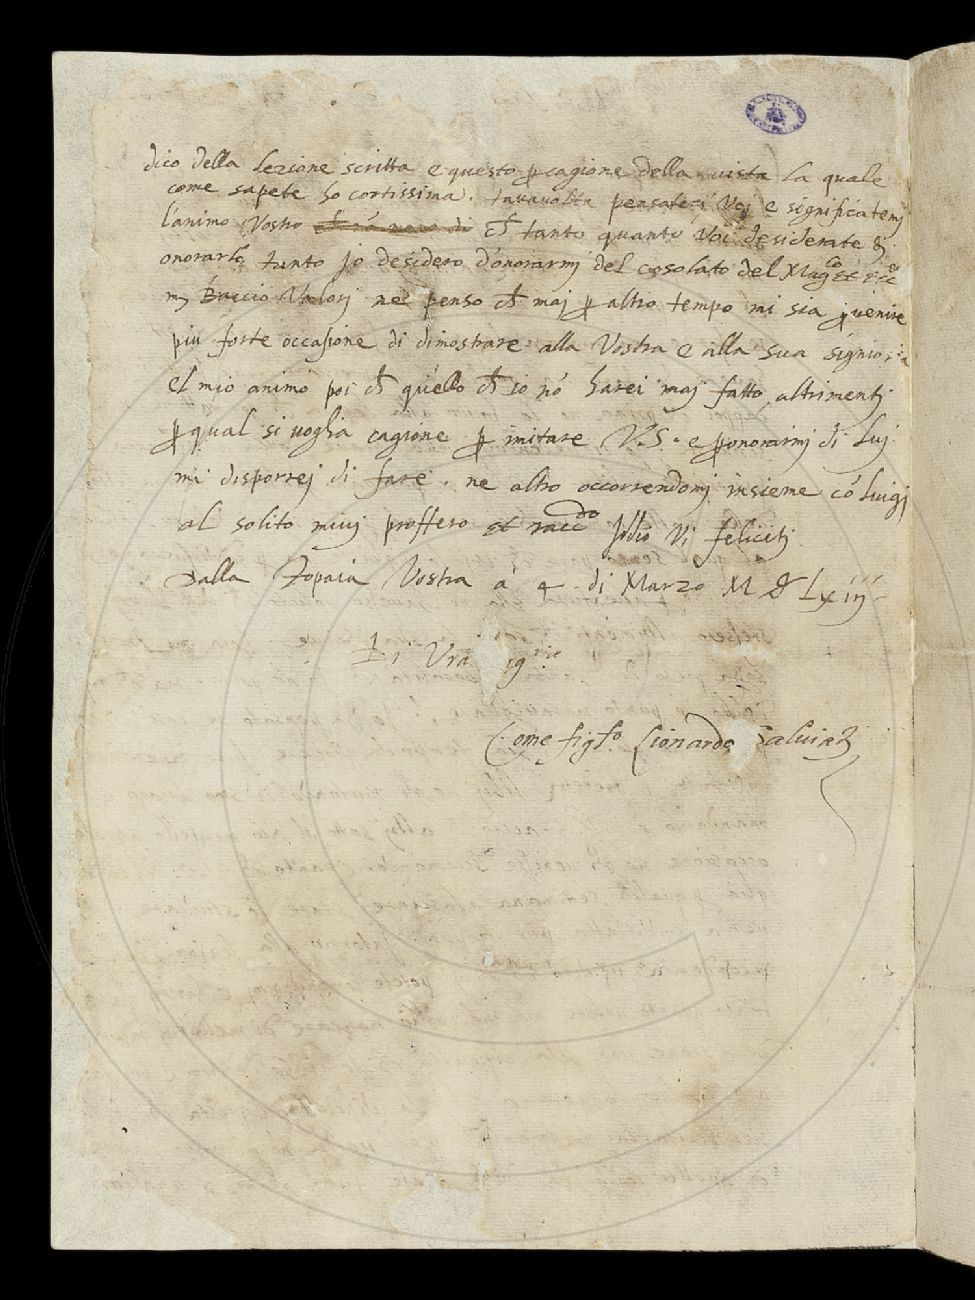 dico della lezione scritta e questo p cagione della vista la quale
come sapete ho cortissima. pensateci Voj e significatemj
l'animo Vostro ch tanto quanto Voi desiderate di
onorarlo tanto jo desidero d'onorarmj del cosolato del Mag.co et Ecc.te
m Baccio Valorj ne penso ch maj p altro tempo mi sia p venire
piu forte occasione di dimostrare alla Vostra e alla sua signioria
el mio animo poi ch quello ch io nō harei maj fatto altrimentj
p qual si voglia cagione p imitare V.S. e p onorarmj di Luj
mi disporrej di fare. ne altro occorrendomj insieme cō Luigj
al solito mi vj proffero et racc.do Jddio Vi felicitj.
Dalla Topaia Vostra a 4 di Marzo M D Lxiij
Di Vra Sig.rie
Come figl.o Lionardo Salviati